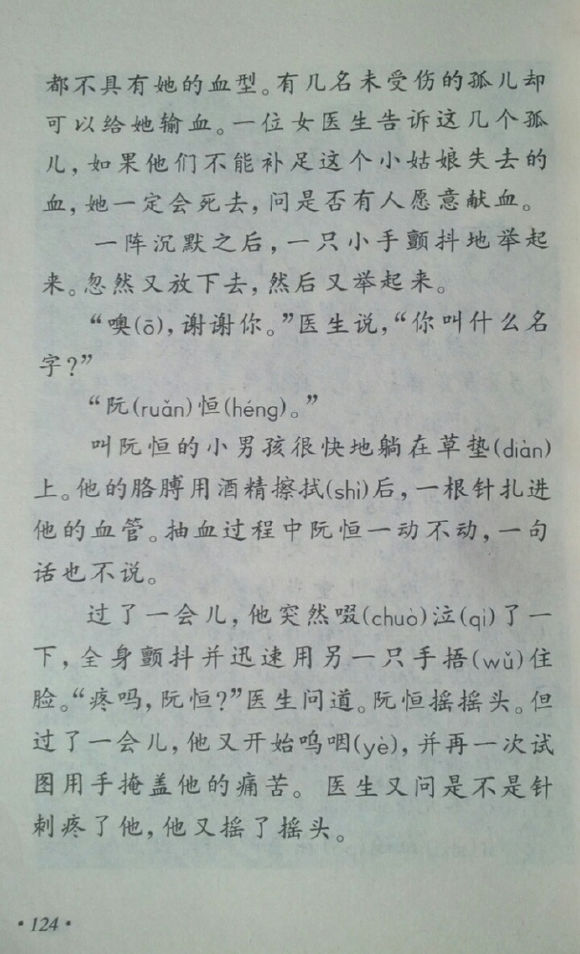 都不具有她的血型。有几名未受伤的孤儿却
可以给她输血。一位女医生告诉这几个孤
儿，如果他们不能补足这个小姑娘失去的
血，她一定会死去，问是否有人愿意献血。
一阵沉默之后，一只小手颤抖地举起
来。忽然又放下去，然后又举起来。
“噢(ō)，谢谢你。”医生说，“你叫什么名
字？”
“阮(ruǎn)恒(héng)。”
叫阮恒的小男孩很快地躺在草垫(diàn)
上。他的胳膊用酒精擦拭(shì)后，一根针扎进
他的血管。抽血过程中阮恒一动不动，一句
话也不说。
过了一会儿，他突然啜(chuò)泣(qì)了一
下，全身颤抖并迅速用另一只手捂(wǔ)住
脸。“疼吗，阮恒？”医生问道。阮恒摇摇头。但
过了一会儿，他又开始呜咽(yè)，并再一次试
图用手掩盖他的痛苦。医生又问是不是针
刺疼了他，他又摇了摇头。
·124·